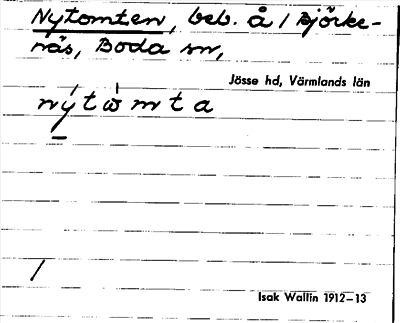 Nytomten, beb. å / Björke-
näs, Boda sn,
Jösse hd, Värmlands län
nýtὼmta
/
Isak Wallin 1912–13